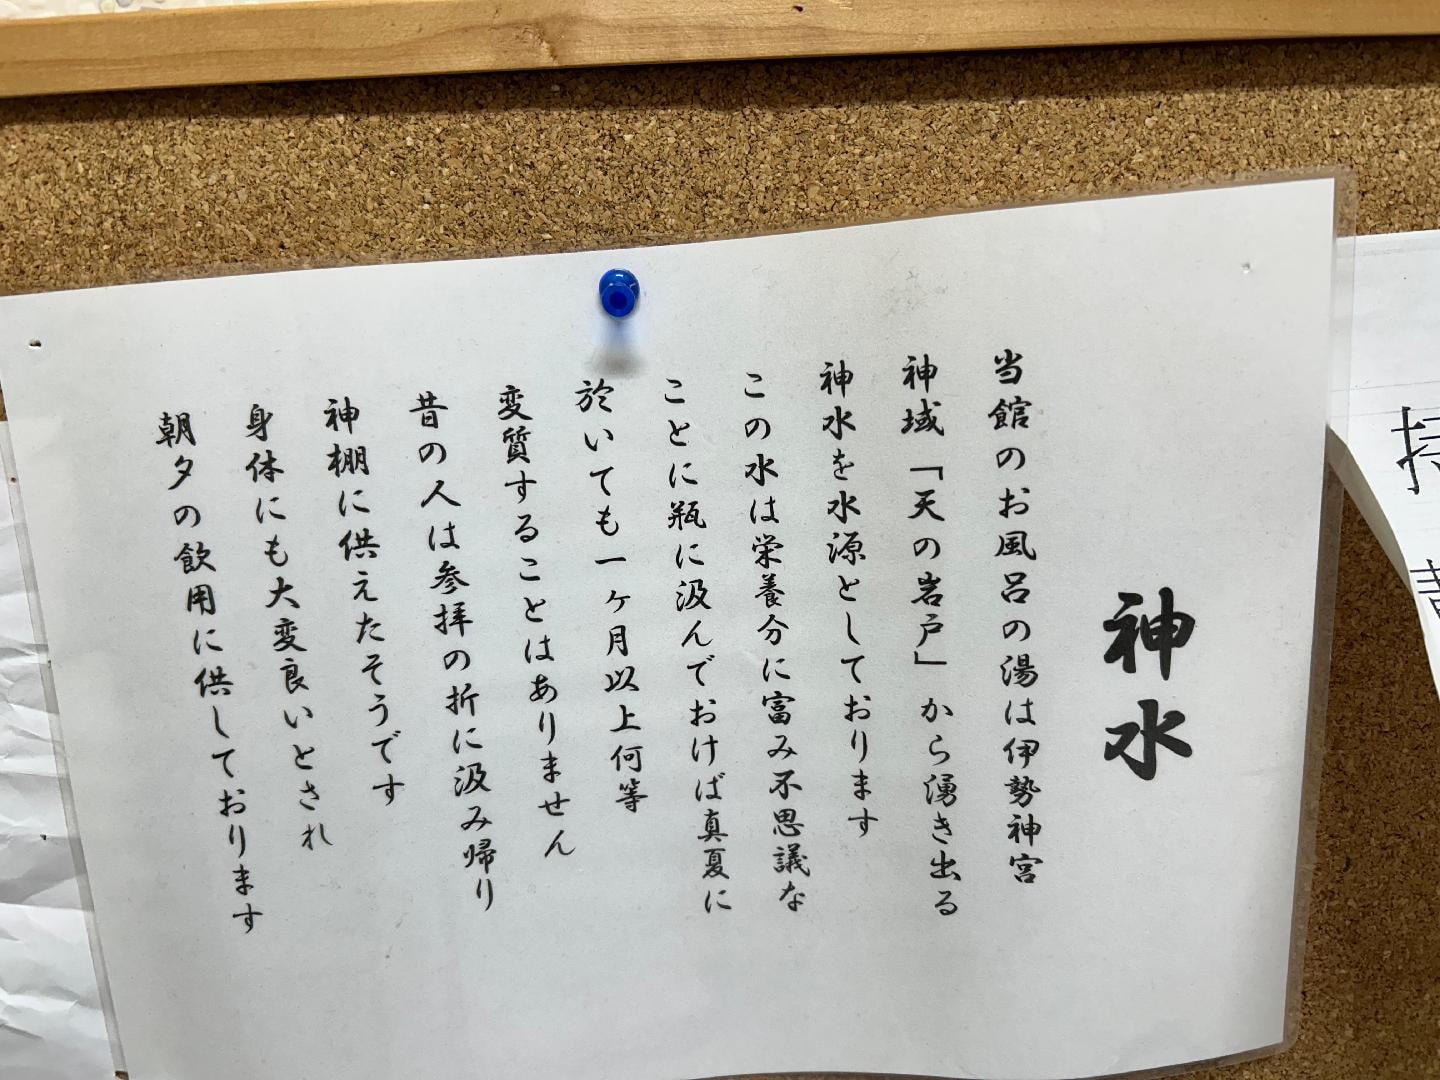 神水
当館のお風呂の湯は伊勢神宮
神域「天の岩戸」から湧き出る
神水を水源としております
この水は栄養分に富み不思議な
ことに瓶に汲んでおけば真夏に
於いても一ヶ月以上何等
変質することはありません
昔の人は参拝の折に汲み帰り
神棚に供えたそうです
身体にも大変良いとされ
朝夕の飲用に供しております